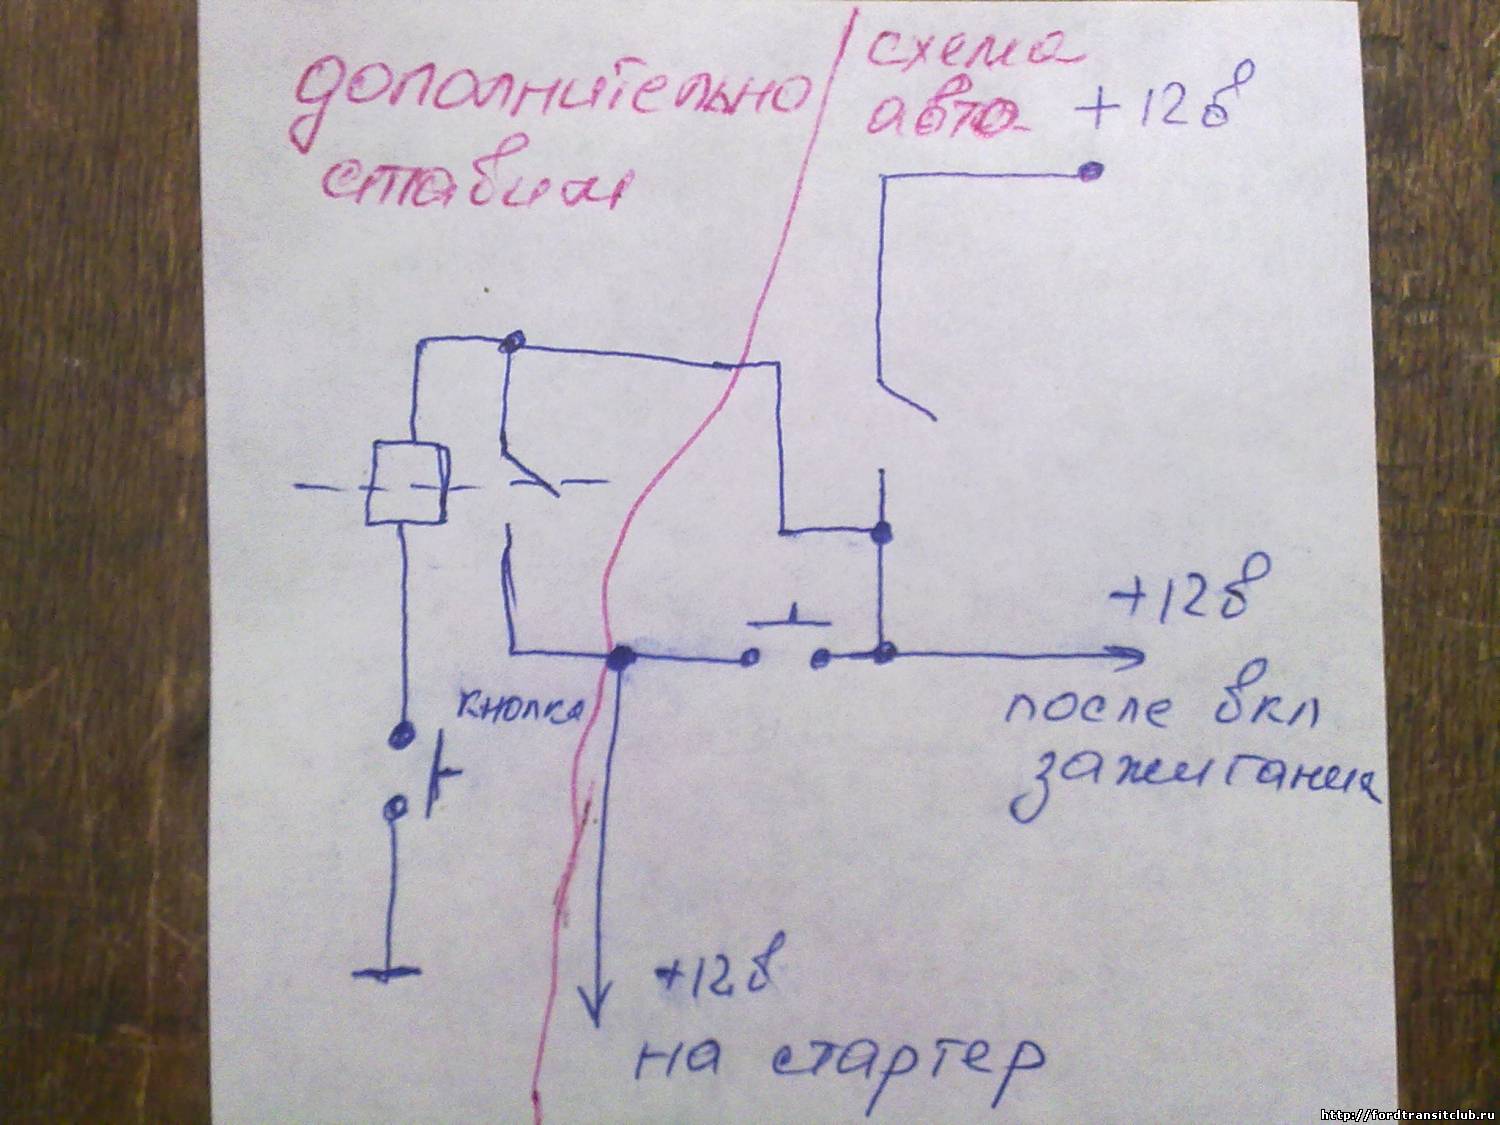 дополнительно
ставим
схема
авто
+12в
кнопка
+12в
после вкл
зажигания
+12в
на стартер
http://fordtransitclub.ru